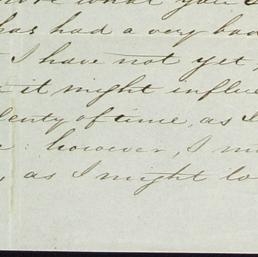 more what you
has had a very bad
I have not yet
it might influe
plenty of time, as I
: however, I m
, as I might lo